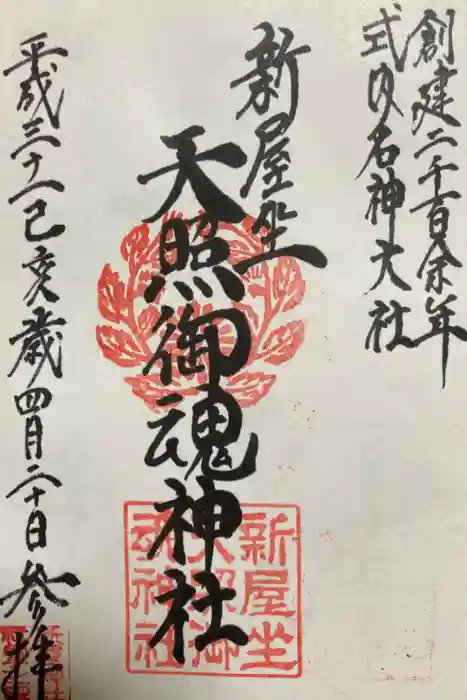 創建二千百余年
式内名神大社
新屋坐
天照御魂神社
平成三十一己亥歳四月二十日参拝
新屋坐
天照御
魂神社